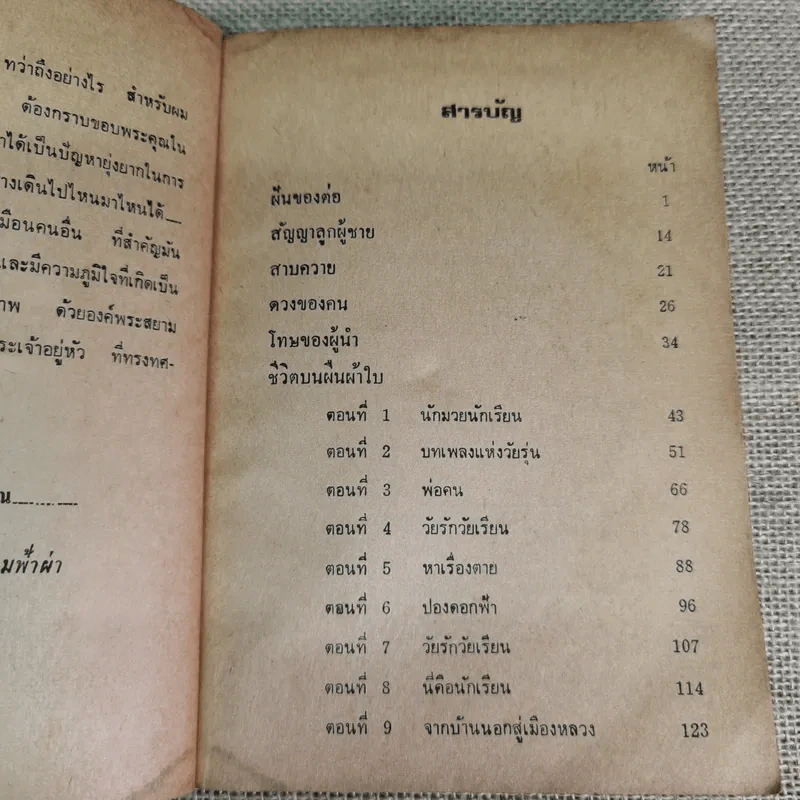 ทว่าถึงอย่างไร สำหรับผม
ต้องกราบขอบพระคุณใน
าได้เป็นปัญหายุ่งยากในการ
างเดินไปไหนมาไหนได้
มือนคนอื่น ที่สำคัญมัน
และมีความภูมิใจที่เกิดเป็น
าพ ด้วยองค์พระสยาม
ระเจ้าอยู่หัว ที่ทรงทศ-
ณ..........
มฟ้าผ่า
สารบัญ
หน้า
ฝันของต่อ 1
สัญญาลูกผู้ชาย 14
สาบควาย 21
ดวงของคน 26
โทษของผู้นำ 34
ชีวิตบนผืนผ้าใบ
ตอนที่ 1 นักมวยนักเรียน 43
ตอนที่ 2 บทเพลงแห่งวัยรุ่น 51
ตอนที่ 3 พ่อคน 66
ตอนที่ 4 วัยรักวัยเรียน 78
ตอนที่ 5 หาเรื่องตาย 88
ตอนที่ 6 ปองดอกฟ้า 96
ตอนที่ 7 วัยรักวัยเรียน 107
ตอนที่ 8 นี่คือนักเรียน 114
ตอนที่ 9 จากบ้านนอกสู่เมืองหลวง 123